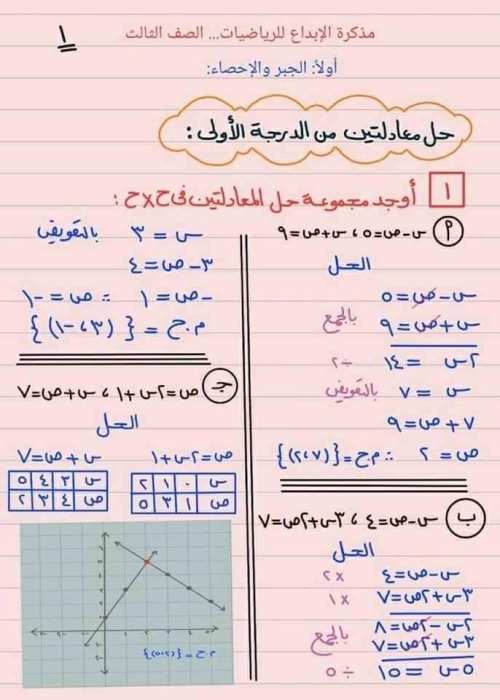 مذكرة الإبداع للرياضيات... الصف الثالث
١
أولاً: الجبر والإحصاء:
حل معادلتين من الدرجة الأولى :
١ أوجد مجموعة حل المعادلتين فى ح×ح :
أ س - ص = ٥ ، س + ص = ٩
الحل
س - ص = ٥
س + ص = ٩ بالجمع
٢س = ١٤ ÷٢
س = ٧ بالتعويض
٧ + ص = ٩
ص = ٢ ∴ م.ح = {(٧،٢)}
ب س - ص = ٤ ، ٣س + ٢ص = ٧
الحل
س - ص = ٤ ×٢
٣س + ٢ص = ٧ ×١
٢س - ٢ص = ٨
٣س + ٢ص = ٧ بالجمع
٥س = ١٥ ÷ ٥
س = ٣ بالتعويض
٣ - ص = ٤
- ص = ١ ∴ ص = -١
م.ح = { (٣ ، -١) }
جـ ص = ٢س + ١ ، س + ص = ٧
الحل
ص = ٢س + ١
س ٠ ١ ٢
ص ١ ٣ ٥
س + ص = ٧
س ٣ ٤ ٥
ص ٤ ٣ ٢
م.ح = {(٢،٥)}